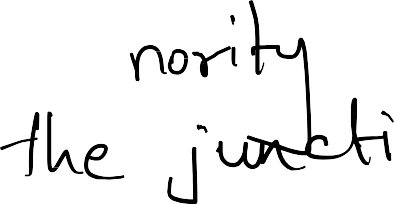 nority
the juncti